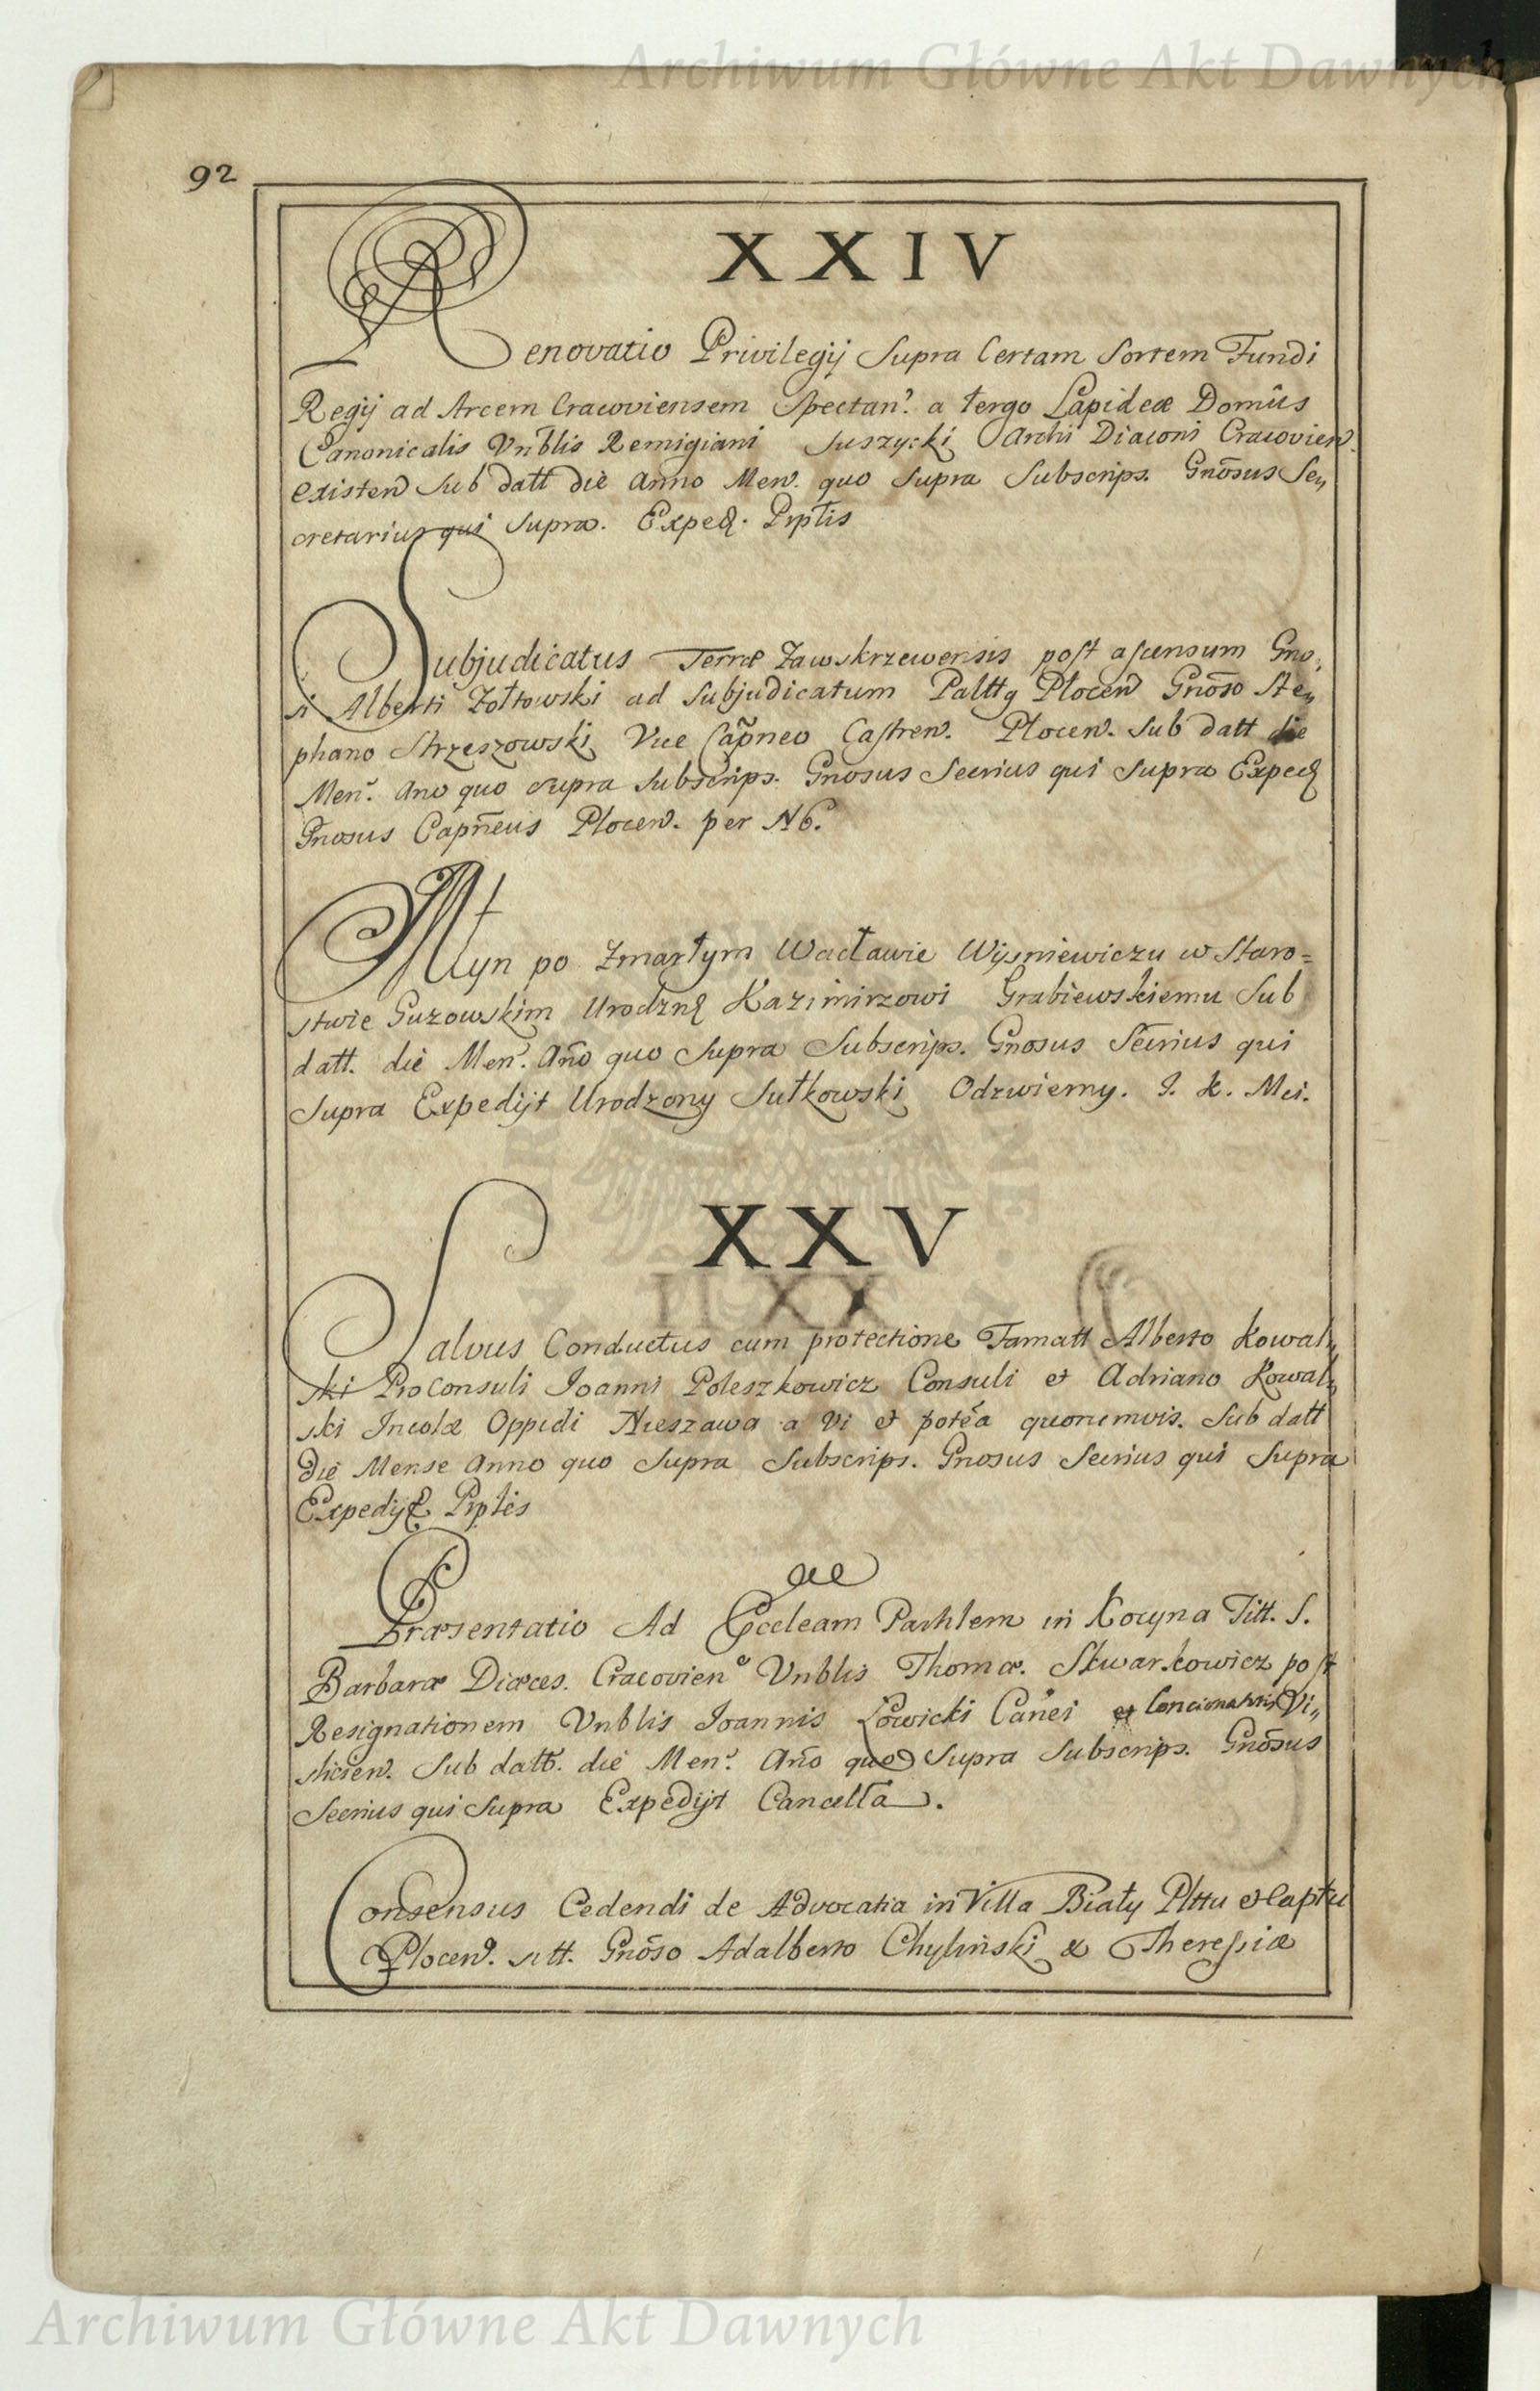 Archiwum Główne Akt Dawnych
92
XXIV
Renovatio Privilegij Supra Certam Sortem Fundi
Regij ad Arcem Cracoviensem Spectan. a tergo Lapideæ Domûs
Canonicalis Vnblis Remigiani Suszycki Archi Diaconi Cracovien.
existen Sub datt die Anno Men. quo Supra Subscrips. Gnōsus Se„
cretarius qui Supra. Exped. Prptīs
Subjudicatus Terræ Zawskrzewensis post ascensum Gno„
si Alberti Zołtowski ad Subjudicatum Palttg Płocen Gnōso Ste„
phano Strzeszowski Vice Capñeo Castren. Plocen. Sub datt die
Men. Ano quo supra Subscrips. Gnosus Secrius qui Supra Exped
Gnosus Capñeus Plocen. per NB.
Młyn po Zmarłym Wacławie Wiśniewiczu w Staro=
stwie Guzowskim Urodzn Kazimirzowi Grabiewskiemu Sub
datt. die Men. Año quo Supra Subscrips. Gnosus Secrius qui
Supra Expedijt Urodzony Sułkowski Odzwierny. J. K. Mci.
XXV
Salvus Conductus cum protectione Famatt Alberto Kowal„
ski ProConsuli Joanni Poleszkowicz Consuli et Adriano Kowal„
ski Incolæ Oppidi Nieszawa a vi et potēa quorumvis. Sub datt
Die Mense Anno quo Supra Subscrips. Gnosus Secrius qui Supra
Expedijt Prptēs
Præsentatio Ad Eccleam Parhlem in Kocyna Titt. S.
Barbaræ Diæces. Cracovien Vnblis Thomæ. Skwarkowicz post
Resignationem Vnblis Joannis Łowicki Cañei et Concionatoris Vi„
slicien. Sub datt. die Men. Año quo Supra Subscrips. Gnōsus
Secrius qui Supra Expedijt Cancellā.
Consensus Cedendi de Advocatia in Villa Biały Plttu et Captu
Plocen. sitt. Gnōso Adalberto Chyliński & Theressiæ
Archiwum Główne Akt Dawnych